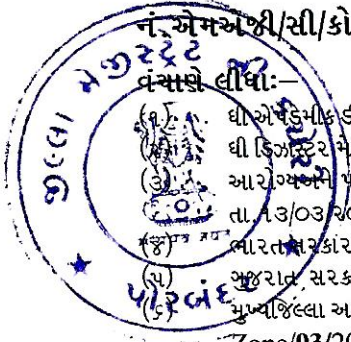 નં.એમએજી/સી/કો
વંચાણે લીધા:–
(૧) ધી એપેડેમીક ડી
ધી ડિઝાસ્ટર મે
(૩) આરોગ્ય અને પ
તા.૧૩/૦૩/૨૦
(૪) ભારત સરકાર
(૫) ગુજરાત સરકા
(૬) મુખ્ય જિલ્લા આ
Zone/03/20
જીલ્લા મેજીસ્ટ્રેટ
પોરબંદર